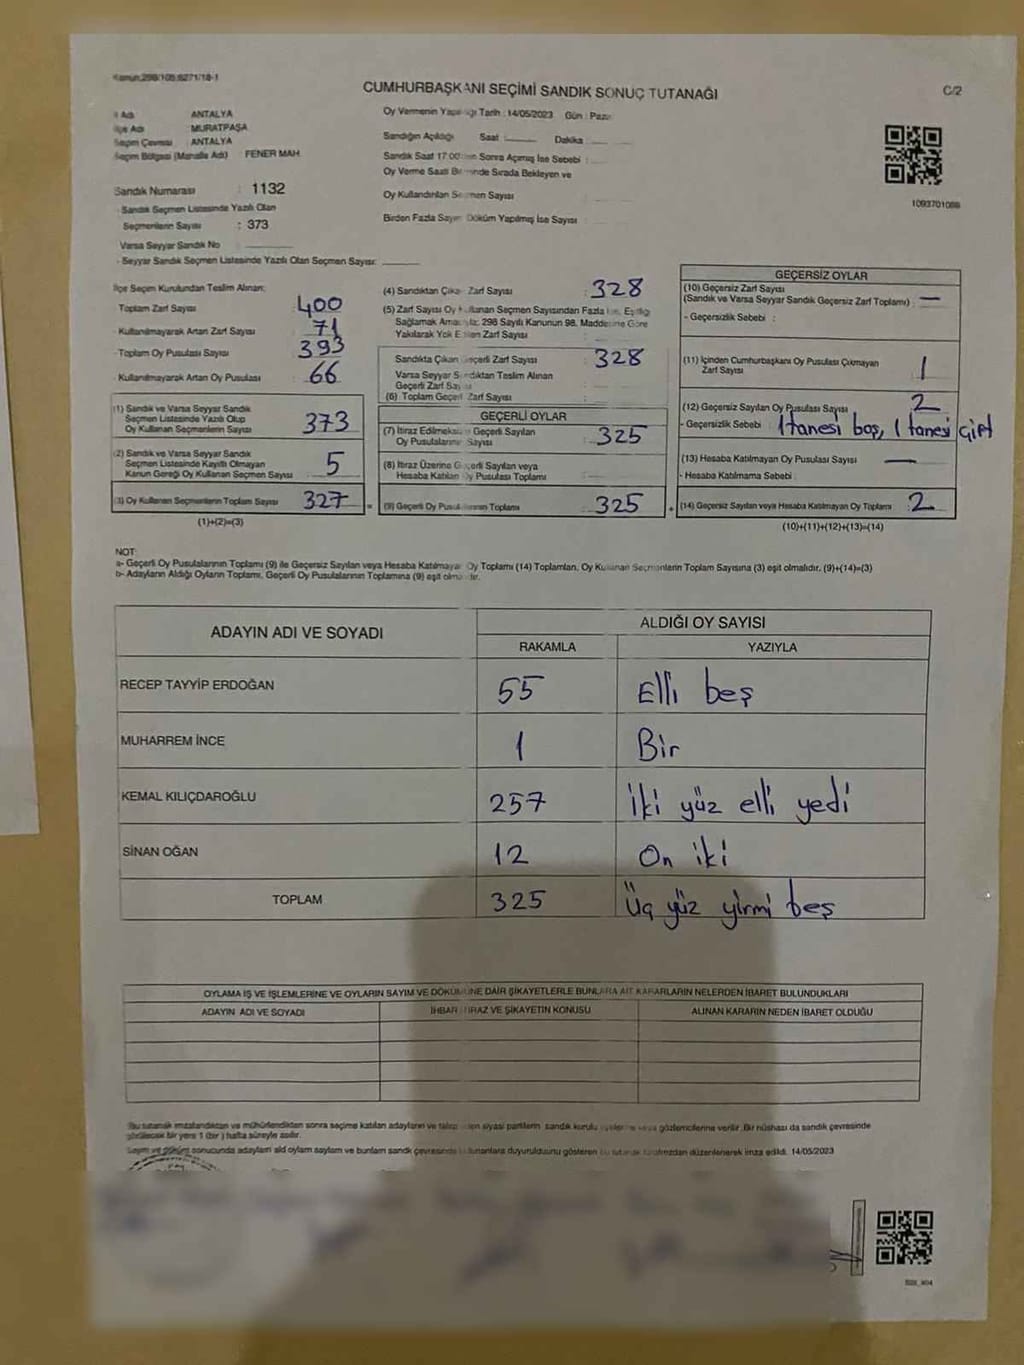 Kanun:298/105;6271/18-1
CUMHURBAŞKANI SEÇİMİ SANDIK SONUÇ TUTANAĞI
C/2
İl Adı : ANTALYA
İlçe Adı : MURATPAŞA
Seçim Çevresi : ANTALYA
Seçim Bölgesi (Mahalle Adı) FENER MAH
Sandık Numarası : 1132
- Sandık Seçmen Listesinde Yazılı Olan
Seçmenlerin Sayısı : 373
Varsa Seyyar Sandık No
- Seyyar Sandık Seçmen Listesinde Yazılı Olan Seçmen Sayısı:
Oy Vermenin Yapıldığı Tarih : 14/05/2023 Gün : Pazar
Sandığın Açıldığı Saat Dakika
Sandık Saat 17:00'den Sonra Açılmış İse Sebebi :
Oy Verme Saati Bitiminde Sırada Bekleyen ve
Oy Kullandırılan Seçmen Sayısı
Birden Fazla Sayım Döküm Yapılmış İse Sayısı :
1093701088
İlçe Seçim Kurulundan Teslim Alınan:
Toplam Zarf Sayısı : 400
- Kullanılmayarak Artan Zarf Sayısı : 71
- Toplam Oy Pusulası Sayısı : 393
- Kullanılmayarak Artan Oy Pusulası : 66
(1) Sandık ve Varsa Seyyar Sandık
Seçmen Listesinde Yazılı Olup
Oy Kullanan Seçmenlerin Sayısı : 373
(2) Sandık ve Varsa Seyyar Sandık
Seçmen Listesinde Kayıtlı Olmayan
Kanun Gereği Oy Kullanan Seçmen Sayısı : 5
(3) Oy Kullanan Seçmenlerin Toplam Sayısı : 327
(1)+(2)=(3)
(4) Sandıktan Çıkan Zarf Sayısı : 328
(5) Zarf Sayısı Oy Kullanan Seçmen Sayısından Fazla İse, Eşitliği
Sağlamak Amacıyla; 298 Sayılı Kanunun 98. Maddesine Göre
Yakılarak Yok Edilen Zarf Sayısı
Sandıkta Çıkan Geçerli Zarf Sayısı : 328
Varsa Seyyar Sandıktan Teslim Alınan
Geçerli Zarf Sayısı
(6) Toplam Geçerli Zarf Sayısı
GEÇERLİ OYLAR
(7) İtiraz Edilmeksizin Geçerli Sayılan
Oy Pusulalarının Sayısı : 325
(8) İtiraz Üzerine Geçerli Sayılan veya
Hesaba Katılan Oy Pusulası Toplamı
(9) Geçerli Oy Pusulalarının Toplamı : 325
GEÇERSİZ OYLAR
(10) Geçersiz Zarf Sayısı
(Sandık ve Varsa Seyyar Sandık Geçersiz Zarf Toplamı) : —
- Geçersizlik Sebebi :
(11) İçinden Cumhurbaşkanı Oy Pusulası Çıkmayan
Zarf Sayısı 1
(12) Geçersiz Sayılan Oy Pusulası Sayısı : 2
- Geçersizlik Sebebi : 1 tanesi boş, 1 tanesi çift
(13) Hesaba Katılmayan Oy Pusulası Sayısı : —
- Hesaba Katılmama Sebebi
(14) Geçersiz Sayılan veya Hesaba Katılmayan Oy Toplamı : 2
(10)+(11)+(12)+(13)=(14)
NOT:
a- Geçerli Oy Pusulalarının Toplamı (9) ile Geçersiz Sayılan veya Hesaba Katılmayan Oy Toplamı (14) Toplamları, Oy Kullanan Seçmenlerin Toplam Sayısına (3) eşit olmalıdır. (9)+(14)=(3)
b- Adayların Aldığı Oyların Toplamı, Geçerli Oy Pusulalarının Toplamına (9) eşit olmalıdır.
ADAYIN ADI VE SOYADI
ALDIĞI OY SAYISI
RAKAMLA YAZIYLA
RECEP TAYYİP ERDOĞAN 55 Elli beş
MUHARREM İNCE 1 Bir
KEMAL KILIÇDAROĞLU 257 İki yüz elli yedi
SİNAN OĞAN 12 On iki
TOPLAM 325 Üç yüz yirmi beş
OYLAMA İŞ VE İŞLEMLERİNE VE OYLARIN SAYIM VE DÖKÜMÜNE DAİR ŞİKAYETLERLE BUNLARA AİT KARARLARIN NELERDEN İBARET BULUNDUKLARI
ADAYIN ADI VE SOYADI İHBAR İTİRAZ VE ŞİKAYETİN KONUSU ALINAN KARARIN NEDEN İBARET OLDUĞU
Bu tutanak imzalandıktan ve mühürlendikten sonra seçime katılan adayların ve talep eden siyasi partilerin sandık kurulu üyelerine veya gözlemcilerine verilir. Bir nüshası da sandık çevresinde
görülecek bir yere 1 (bir) hafta süreyle asılır.
Sayım ve döküm sonucunda adayların aldığı oyların sayısını ve bunların sandık çevresinde bulunanlara duyurulduğunu gösteren bu tutanak tarafımızdan düzenlenerek imza edildi. 14/05/2023